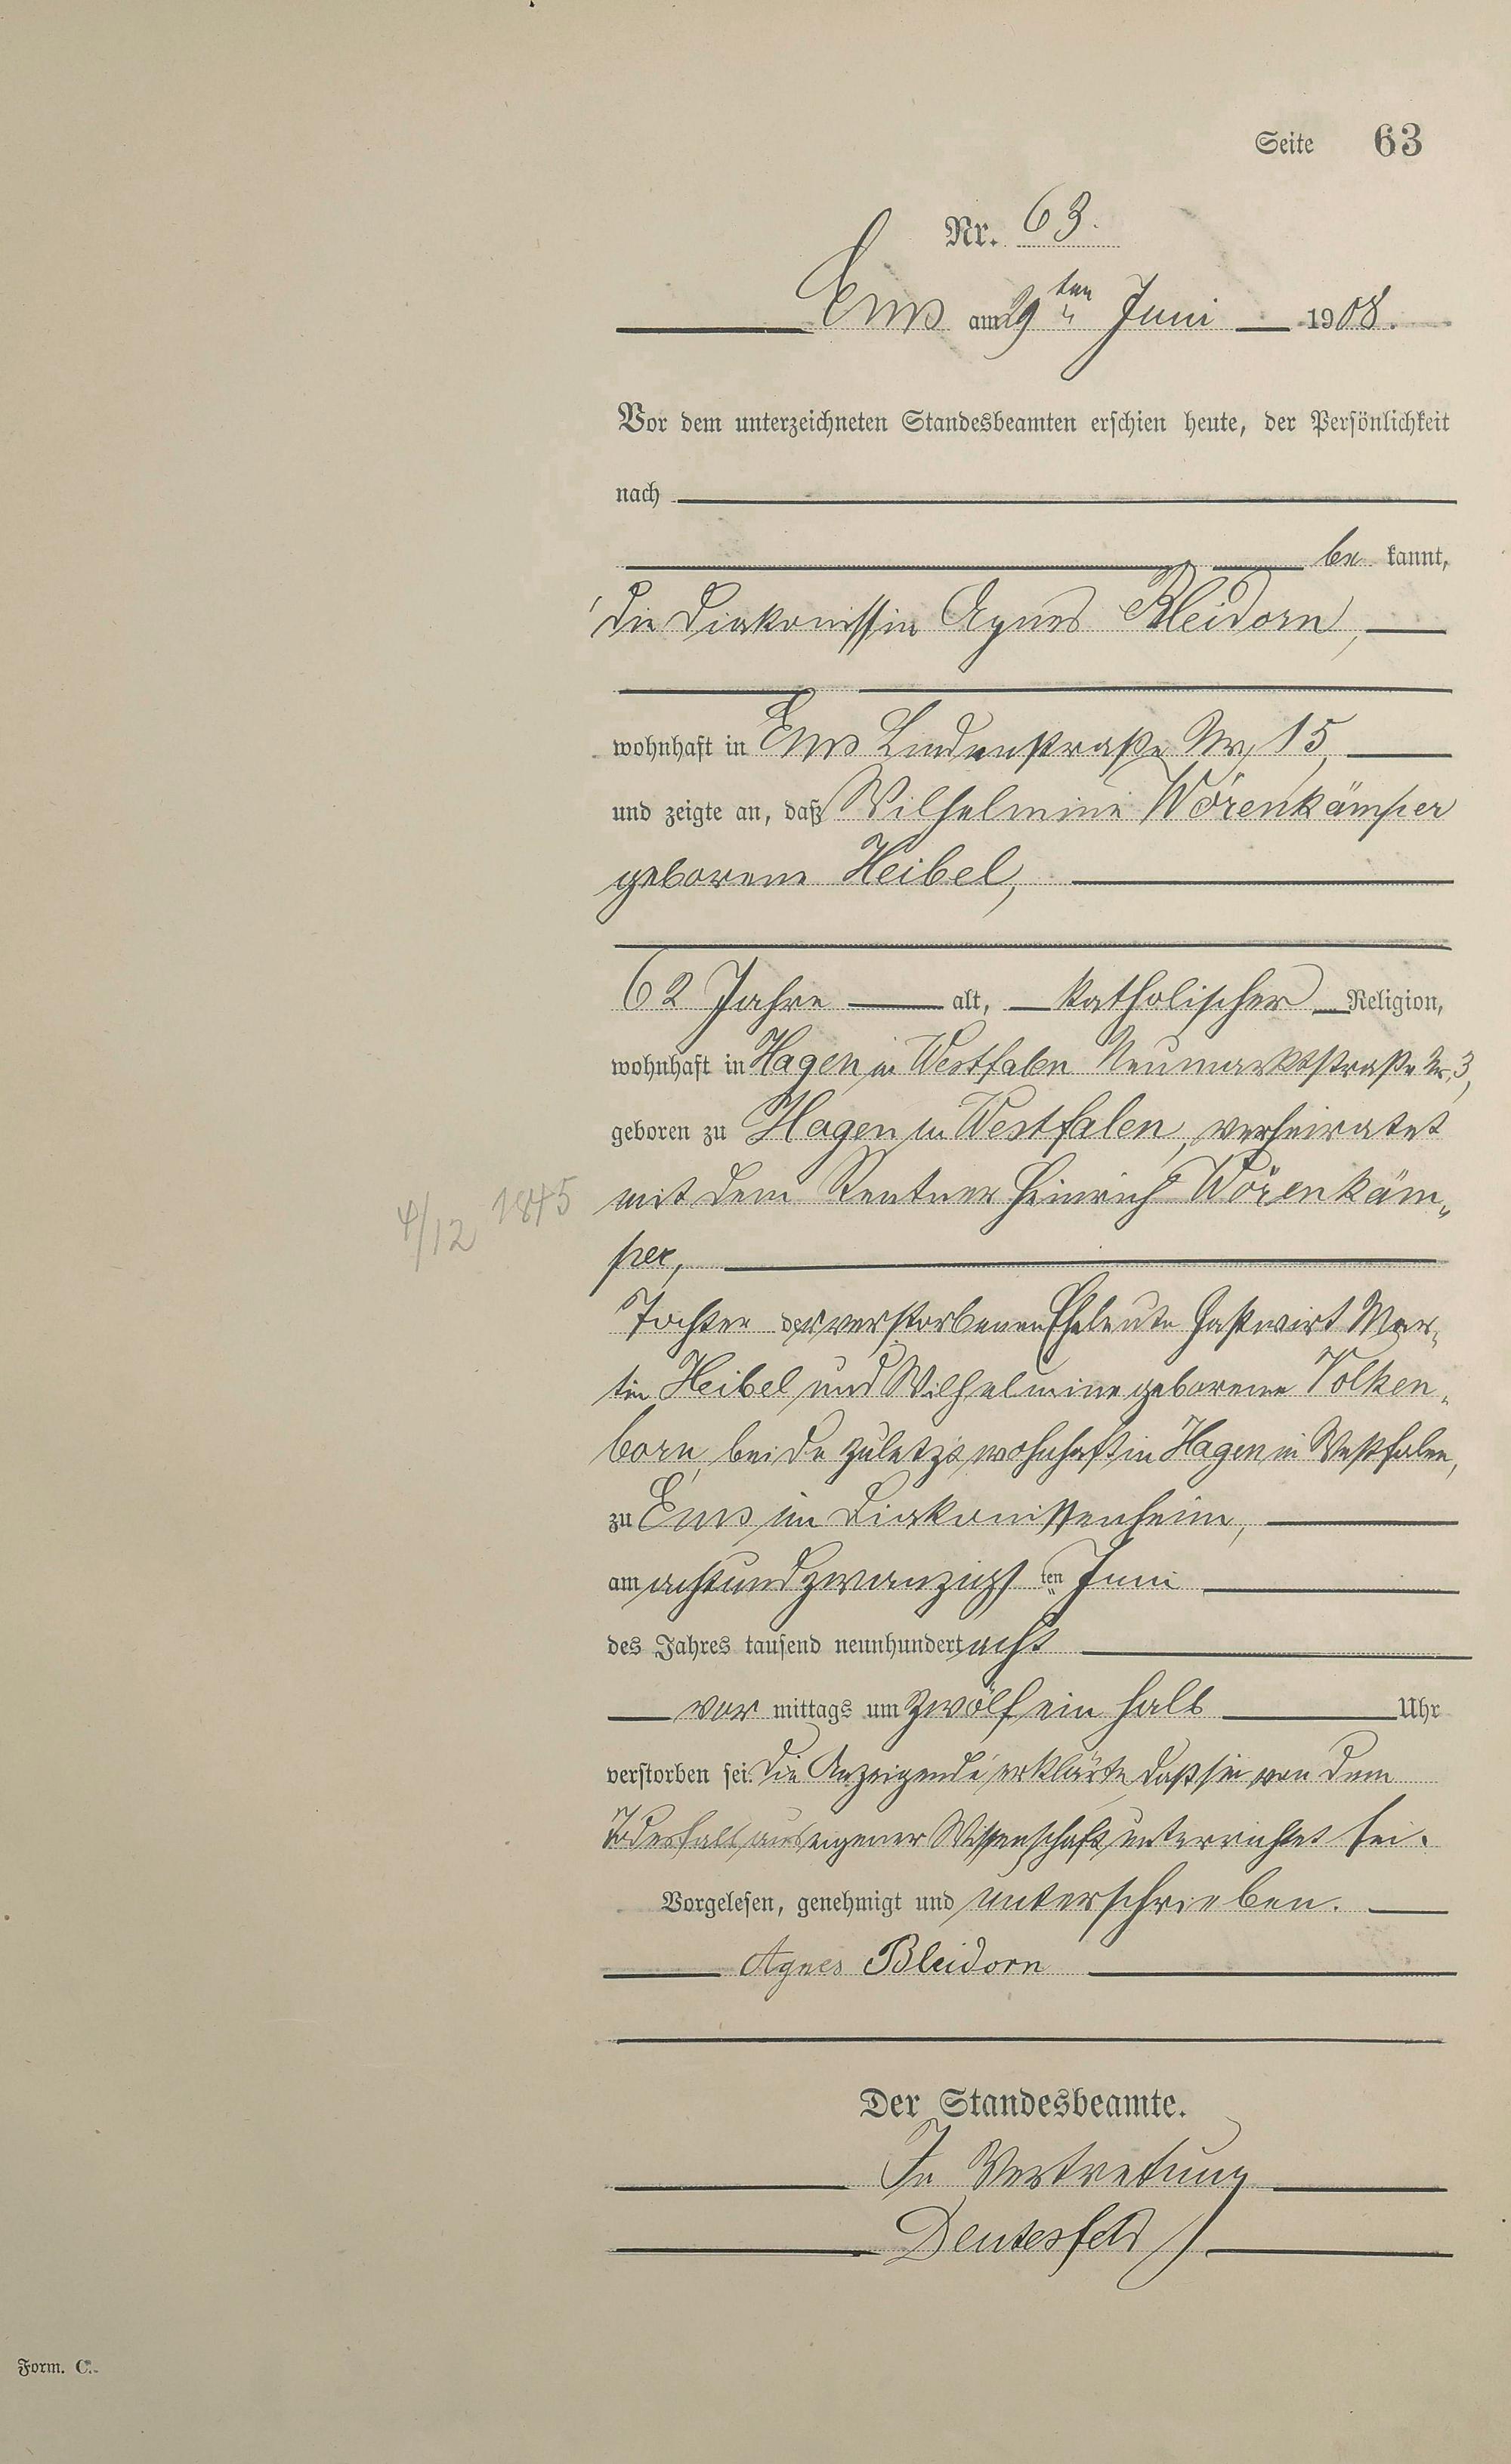 Seite 63
Nr. 63.
Ems am 29ten Juni 1908.
Vor dem unterzeichneten Standesbeamten erschien heute, der Persönlichkeit
nach
be kannt,
die Diakonissin Agnes Bleidorn,
wohnhaft in Ems Lindenstraße Nr. 15,
und zeigte an, daß Wilhelmine Wörenkämper
geborene Heibel,
62 Jahre alt, katholischer Religion,
wohnhaft in Hagen in Westfalen Neumarktstraße Nr. 3,
geboren zu Hagen in Westfalen, verheiratet
4/12 1845
mit dem Rentner Heinrich Wörenkäm„
per,
Tochter der verstorbenen Eheleute Gastwirt Mar„
tin Heibel und Wilhelmine geborene Volken„
born, beide zuletzt wohnhaft in Hagen in Westfalen,
zu Ems im Diakonissenheim,
am achtundzwanzigsten Juni
des Jahres tausend neunhundert acht
vor mittags um zwölf ein halb Uhr
verstorben sei. Die Anzeigende erklärte, daß sie von dem
Todesfall aus eigener Wissenschaft unterrichtet sei.
Vorgelesen, genehmigt und unterschrieben.
Agnes Bleidorn
Der Standesbeamte.
In Vertretung
Deutesfeld
Form. C.